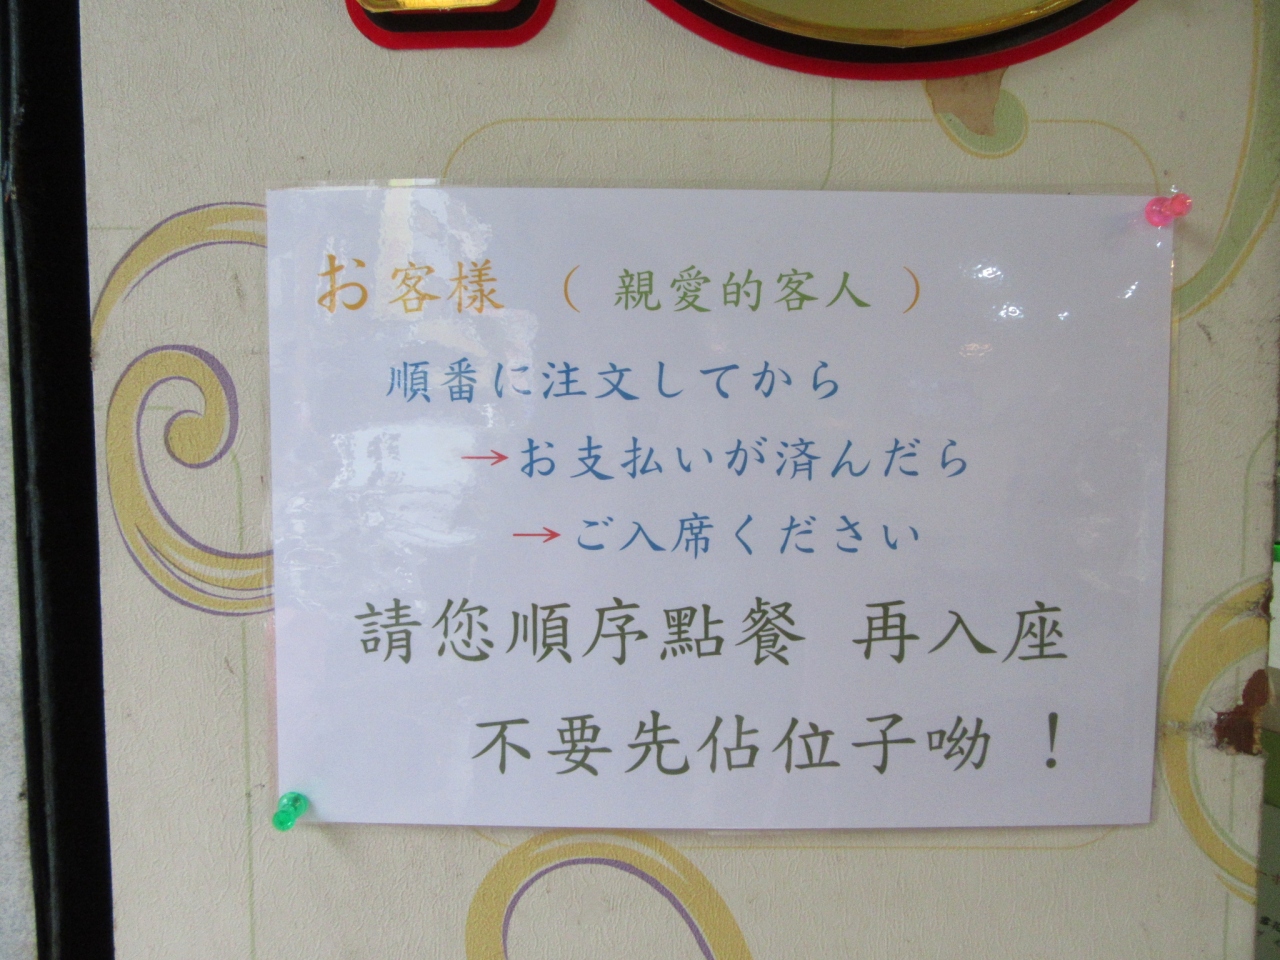 お客様 （ 親愛的客人 ）
順番に注文してから
→お支払いが済んだら
→ご入席ください
請您順序點餐 再入座
不要先佔位子呦 ！